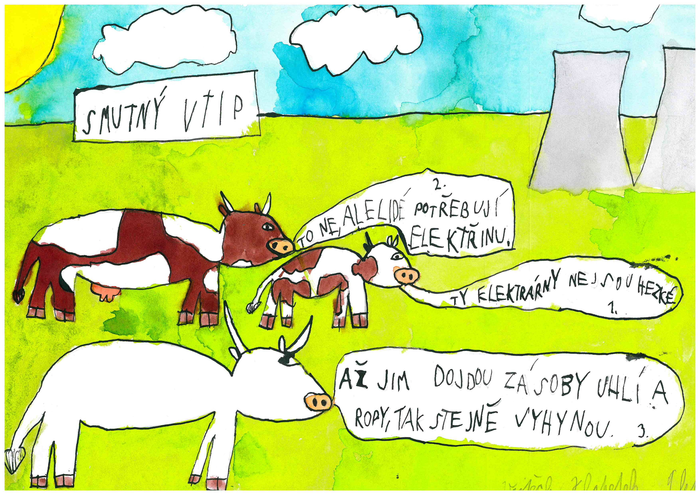 SMUTNÝ VTIP
2.
TO NE, ALE LIDÉ POTŘEBUJÍ
ELEKTŘINU.
TY ELEKTRÁRNY NEJSOU HEZKÉ
1.
AŽ JIM DOJDOU ZÁSOBY UHLÍ A
ROPY, TAK STEJNĚ VYHYNOU. 3.